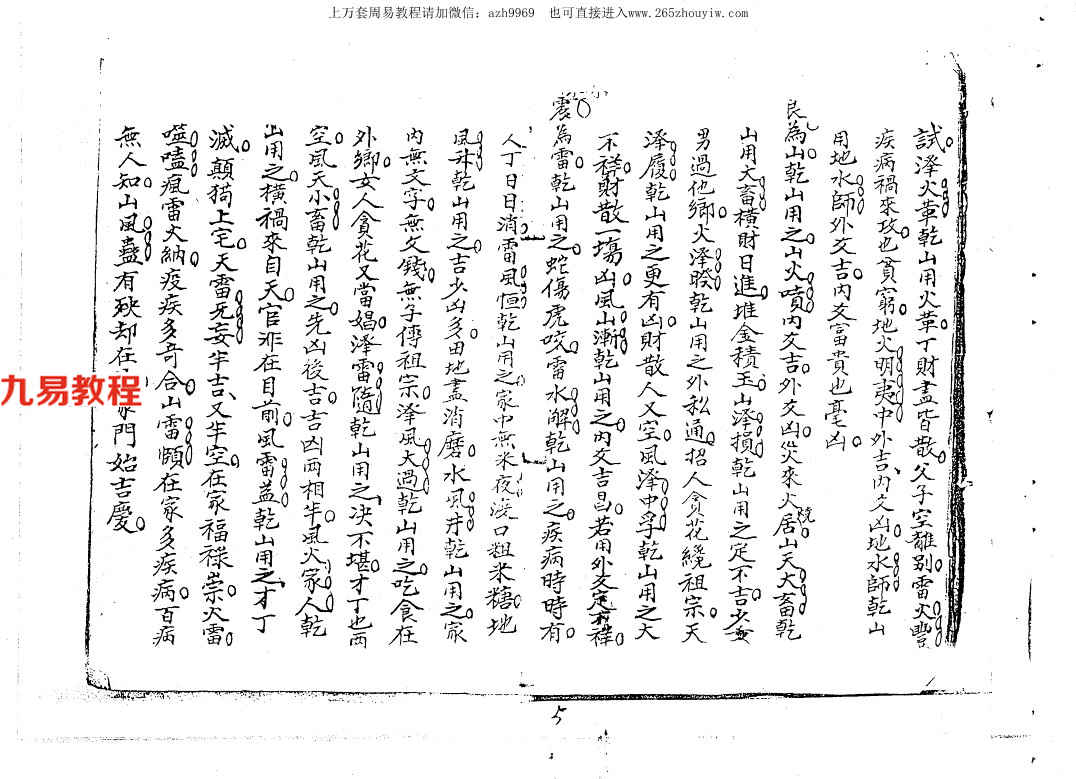 上万套周易教程请加微信: azh9969 也可直接进入www.265zhouyiw.com
試澤火革乾山用火革丁財盡皆散父子空離別雷火豐
疾病禍來攻也貧窮地火明夷中外吉內爻凶地水師乾山
用地水師外爻吉內爻富貴也毫凶
艮為山乾山用之山火賁內爻吉外爻凶災來火居院山天大畜乾
山用大畜橫財日進堆金積玉山澤損乾山用之定不吉少女
男過他鄉火澤睽乾山用之外私通招人貪花繞祖宗天
澤履乾山用之更有凶財散人又空風澤中孚乾山用之大
不祥財散一塲凶風山漸乾山用之內爻吉昌若用外爻定有祥
震為雷乾山用之蛇傷虎咬雷水解乾山用之疾病時時有
人丁日日消雷風恒乾山用之家中無米夜澆口粗米糖地
風升乾山用之吉少凶多田地盡消磨水風井乾山用之家
內無文字無父錢無子傳祖宗澤風大過乾山用之吃食在
外鄉女人貪花又當娼澤雷隨乾山用之决不堪才丁也兩
空風天小畜乾山用之先凶後吉吉凶兩相半風火家人乾
山用之橫禍來自天官非在目前風雷益乾山用之才丁
滅顛猖上宅天雷无妄半吉又半空在家福禄崇火雷
噬嗑瘋雷火納疫疾多奇合山雷頤在家多疾病百病
無人知山風蠱有殃却在 家門始吉慶
九易教程
5